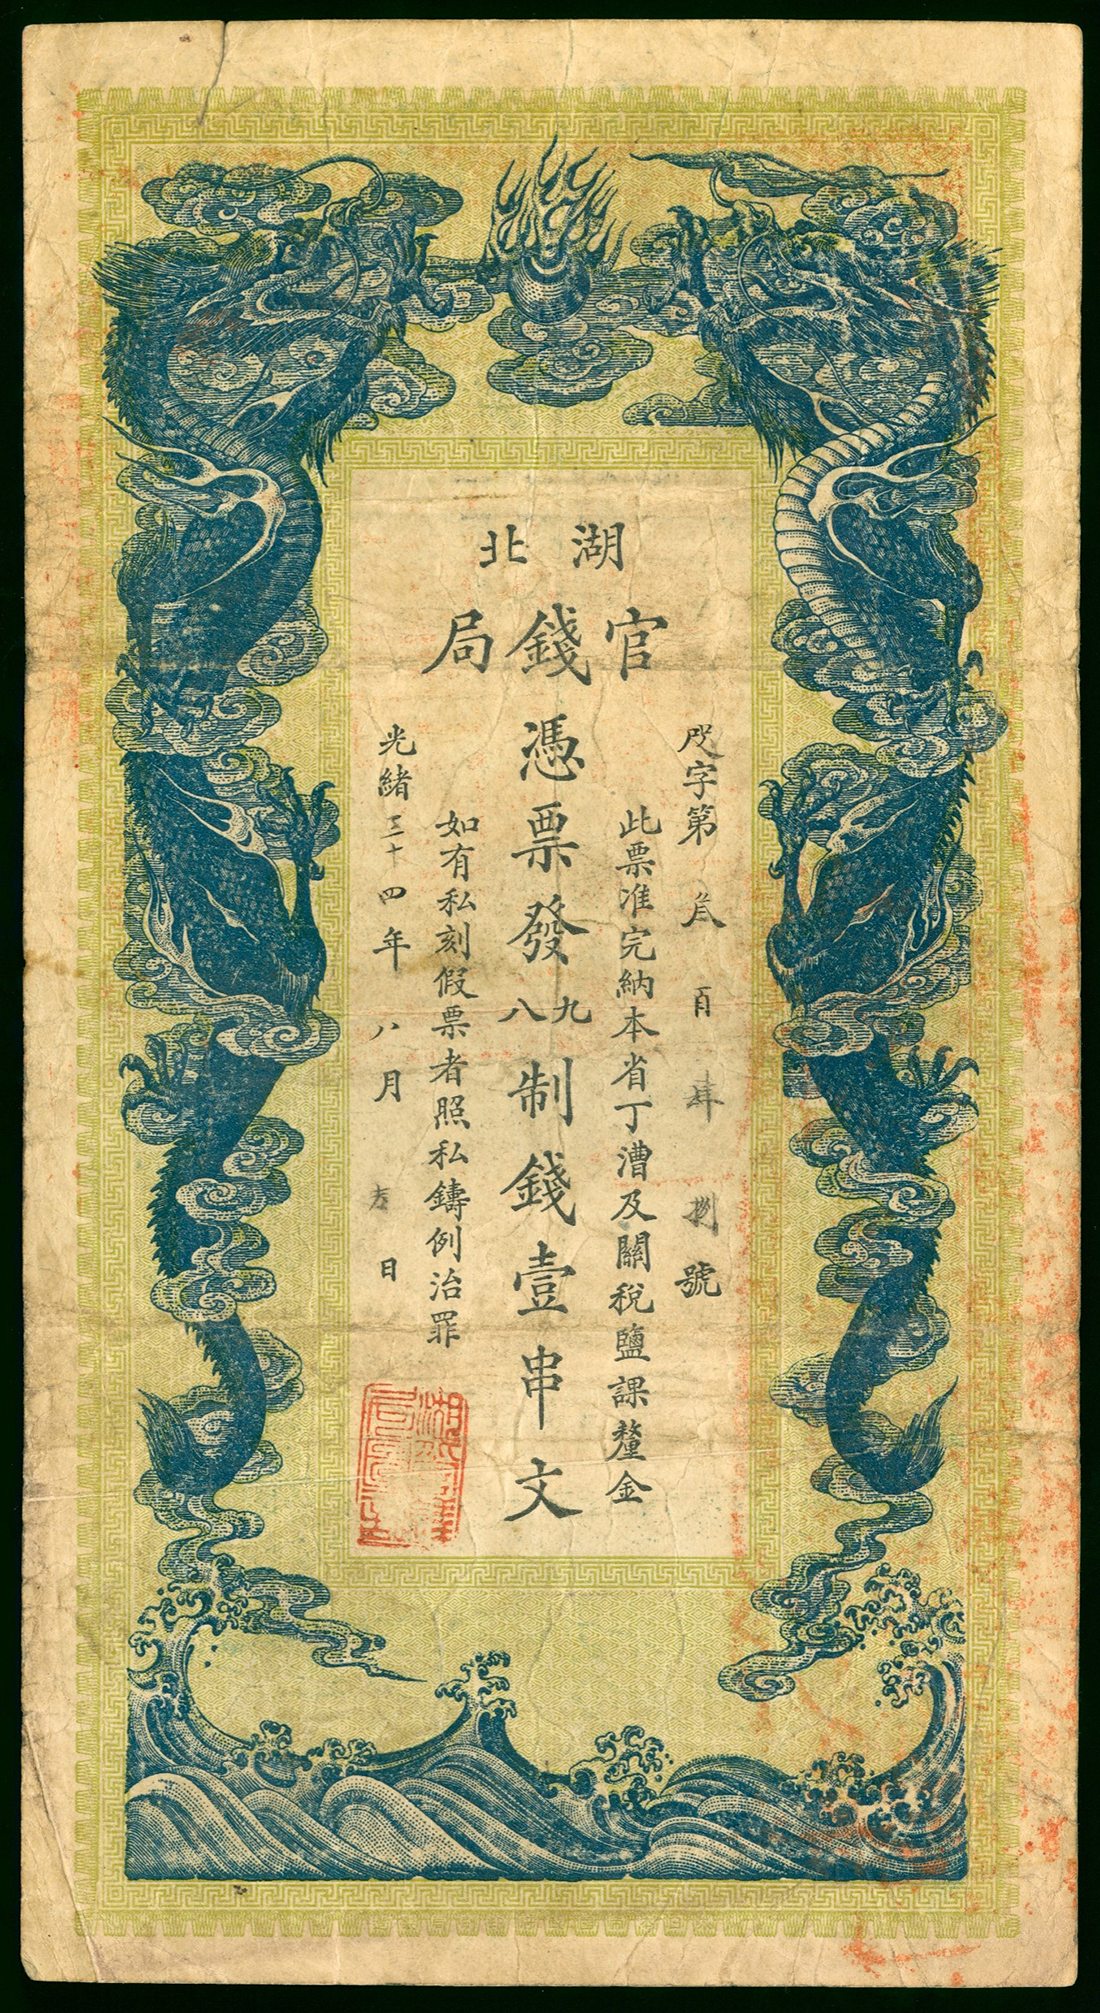 湖北
官錢局
字第 貳 百 肆 捌 號
此票准完納本省丁漕及關稅鹽課釐金
憑票發九八制錢壹串文
如有私刻假票者照私鑄例治罪
光緒三十四年八月 日